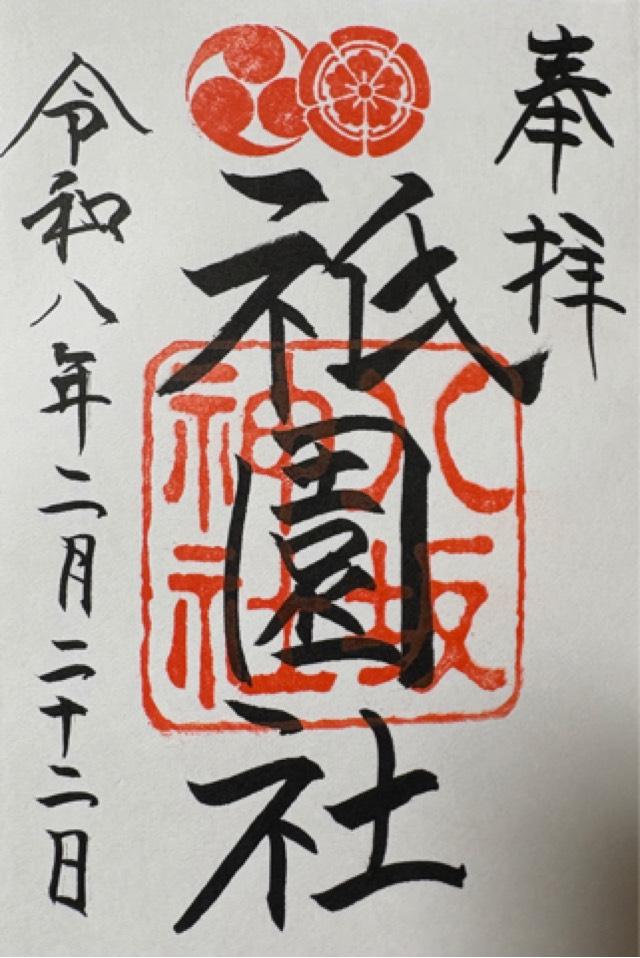 奉拝
祇園社
八坂
神社
令和八年二月二十二日